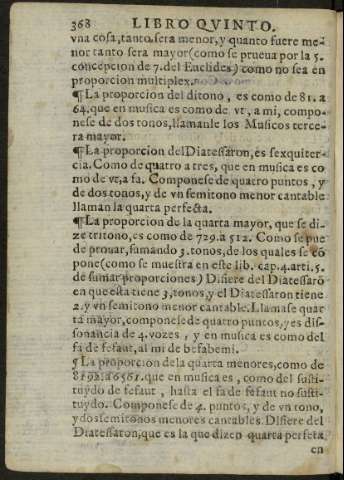 368 LIBRO QVINTO.
vna cosa, tanto sera menor, y quanto fuere me-
nor tanto sera mayor (como se prueua por la 5.
concepcion de 7. del Euclides) como no sea en
proporcion multiplex.
¶ La proporcion del ditono, es como de 81. a
64. que en musica es como de vt, a mi, compo-
nese de dos tonos, llamanle los Musicos terce-
ra mayor.
¶ La proporcion del Diatessaron, es sexquiter-
cia. Como de quatro a tres, que en musica es co
mo de vt, a fa. Componese de quatro puntos, y
de dos tonos, y de vn semitono menor cantable
llaman la quarta perfecta.
¶ La proporcion de la quarta mayor, que se di-
ze tritono, es como de 729. a 512. Como se pue
de prouar, sumando 3. tonos, de los quales se cõ
pone (como se muestra en este lib. cap. 4. arti. 5.
de sumar proporciones) Difiere del Diatessarõ
en que esta tiene 3. tonos, y el Diatessaron tiene
2. y vn semitono menor cantable. Llamase quar
ta mayor, componese de quatro puntos, y es dis-
sonancia de 4. vozes, y en musica es como del
fa de fefaut, al mi de befabemi.
¶ La proporcion de la quarta menores, como de
8192. a 6561. que en musica es, como del susti-
tuydo de fefaut, hasta el fa de fefaut no susti-
tuydo. Componese de 4. puntos, y de vn tono,
y dos semitonos menores cantables. Difiere del
Diatessaron, que es la que dizen quarta perfeta
en